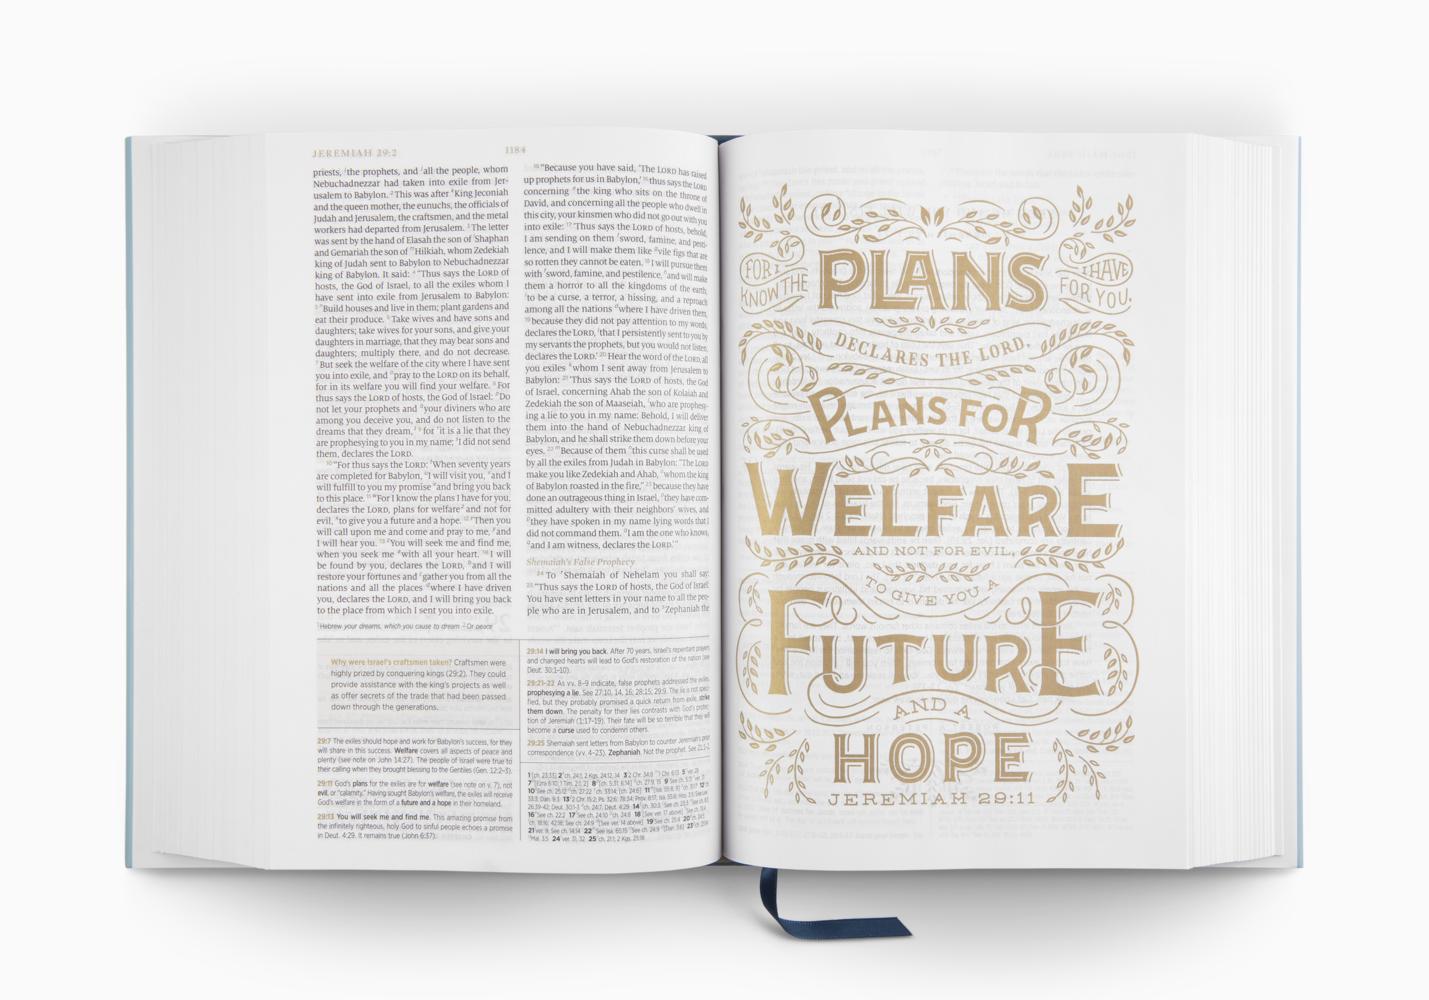 JEREMIAH 29:2
1184
priests, the prophets, and all the people, whom
Nebuchadnezzar had taken into exile from Jer-
usalem to Babylon. 2 This was after King Jeconiah
and the queen mother, the eunuchs, the officials of
Judah and Jerusalem, the craftsmen, and the metal
workers had departed from Jerusalem. 3 The letter
was sent by the hand of Elasah the son of Shaphan
and Gemariah the son of Hilkiah, whom Zedekiah
king of Judah sent to Babylon to Nebuchadnezzar
king of Babylon. It said: 4 “Thus says the LORD of
hosts, the God of Israel, to all the exiles whom I
have sent into exile from Jerusalem to Babylon:
5 Build houses and live in them; plant gardens and
eat their produce. 6 Take wives and have sons and
daughters; take wives for your sons, and give your
daughters in marriage, that they may bear sons and
daughters; multiply there, and do not decrease.
7 But seek the welfare of the city where I have sent
you into exile, and pray to the LORD on its behalf,
for in its welfare you will find your welfare. 8 For
thus says the LORD of hosts, the God of Israel: Do
not let your prophets and your diviners who are
among you deceive you, and do not listen to the
dreams that they dream, 9 for it is a lie that they
are prophesying to you in my name; I did not send
them, declares the LORD.
10 “For thus says the LORD: When seventy years
are completed for Babylon, I will visit you, and I
will fulfill to you my promise and bring you back
to this place. 11 For I know the plans I have for you,
declares the LORD, plans for welfare and not for
evil, to give you a future and a hope. 12 Then you
will call upon me and come and pray to me, and
I will hear you. 13 You will seek me and find me,
when you seek me with all your heart. 14 I will
be found by you, declares the LORD, and I will
restore your fortunes and gather you from all the
nations and all the places where I have driven
you, declares the LORD, and I will bring you back
to the place from which I sent you into exile.
1 Hebrew your dreams, which you cause to dream 2 Or peace
15 “Because you have said, ‘The LORD has raised
up prophets for us in Babylon,’ 16 thus says the LORD
concerning the king who sits on the throne of
David, and concerning all the people who dwell in
this city, your kinsmen who did not go out with you
into exile: 17 ‘Thus says the LORD of hosts, behold,
I am sending on them sword, famine, and pesti-
lence, and I will make them like vile figs that are
so rotten they cannot be eaten. 18 I will pursue them
with sword, famine, and pestilence, and will make
them a horror to all the kingdoms of the earth,
to be a curse, a terror, a hissing, and a reproach
among all the nations where I have driven them,
19 because they did not pay attention to my words,
declares the LORD, that I persistently sent to you by
my servants the prophets, but you would not listen,
declares the LORD.’ 20 Hear the word of the LORD, all
you exiles whom I sent away from Jerusalem to
Babylon: 21 ‘Thus says the LORD of hosts, the God
of Israel, concerning Ahab the son of Kolaiah and
Zedekiah the son of Maaseiah, who are prophesy-
ing a lie to you in my name: Behold, I will deliver
them into the hand of Nebuchadnezzar king of
Babylon, and he shall strike them down before your
eyes. 22 Because of them this curse shall be used
by all the exiles from Judah in Babylon: “The LORD
make you like Zedekiah and Ahab, whom the king
of Babylon roasted in the fire,” 23 because they have
done an outrageous thing in Israel, they have com-
mitted adultery with their neighbors’ wives, and
they have spoken in my name lying words that I
did not command them. I am the one who knows,
and I am witness, declares the LORD.’”
Shemaiah's False Prophecy
24 To Shemaiah of Nehelam you shall say:
25 “Thus says the LORD of hosts, the God of Israel:
You have sent letters in your name to all the peo-
ple who are in Jerusalem, and to Zephaniah the
Why were Israel's craftsmen taken? Craftsmen were
highly prized by conquering kings (29:2). They could
provide assistance with the king's projects as well
as offer secrets of the trade that had been passed
down through the generations.
29:7 The exiles should hope and work for Babylon's success, for they
will share in this success. Welfare covers all aspects of peace and
plenty (see note on John 14:27). The people of Israel were true to
their calling when they brought blessing to the Gentiles (Gen. 12:2–3).
29:11 God's plans for the exiles are for welfare (see note on v. 7), not
evil, or “calamity.” Having sought Babylon's welfare, the exiles will receive
God's welfare in the form of a future and a hope in their homeland.
29:13 You will seek me and find me. This amazing promise from
the infinitely righteous, holy God to sinful people echoes a promise
in Deut. 4:29. It remains true (John 6:37).
29:14 I will bring you back. After 70 years, Israel's repentant prayers
and changed hearts will lead to God's restoration of the nation (see
Deut. 30:1–10).
29:21–22 As vv. 8–9 indicate, false prophets addressed the exiles,
prophesying a lie. See 27:10, 14, 16; 28:15; 29:9. The lie is not speci-
fied, but they probably promised a quick return from exile.
them down. The penalty for their lies contrasts with God's protec-
tion of Jeremiah (1:17–19). Their fate will be so terrible that they will
become a curse used to condemn others.
29:25 Shemaiah sent letters from Babylon to counter Jeremiah's prior
correspondence (vv. 4–23). Zephaniah. Not the prophet. See 21:1–2
FOR I
KNOW THE
PLANS
I HAVE
FOR YOU,
DECLARES THE LORD,
PLANS FOR
WELFARE
AND NOT FOR EVIL,
TO GIVE YOU A
FUTURE
AND A
HOPE
JEREMIAH 29:11